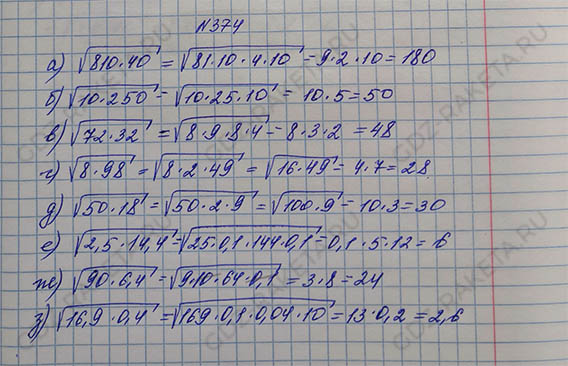 №374
а) √810·40 = √81·10·4·10 = 9·2·10 = 180
б) √10·250 = √10·25·10 = 10·5 = 50
в) √72·32 = √8·9·8·4 = 8·3·2 = 48
г) √8·98 = √8·2·49 = √16·49 = 4·7 = 28
д) √50·18 = √50·2·9 = √100·9 = 10·3 = 30
е) √2,5·14,4 = √25·0,1·144·0,1 = 0,1·5·12 = 6
ж) √90·6,4 = √9·10·64·0,1 = 3·8 = 24
з) √16,9·0,4 = √169·0,1·0,04·10 = 13·0,2 = 2,6
GDZ-RAKETA.RU